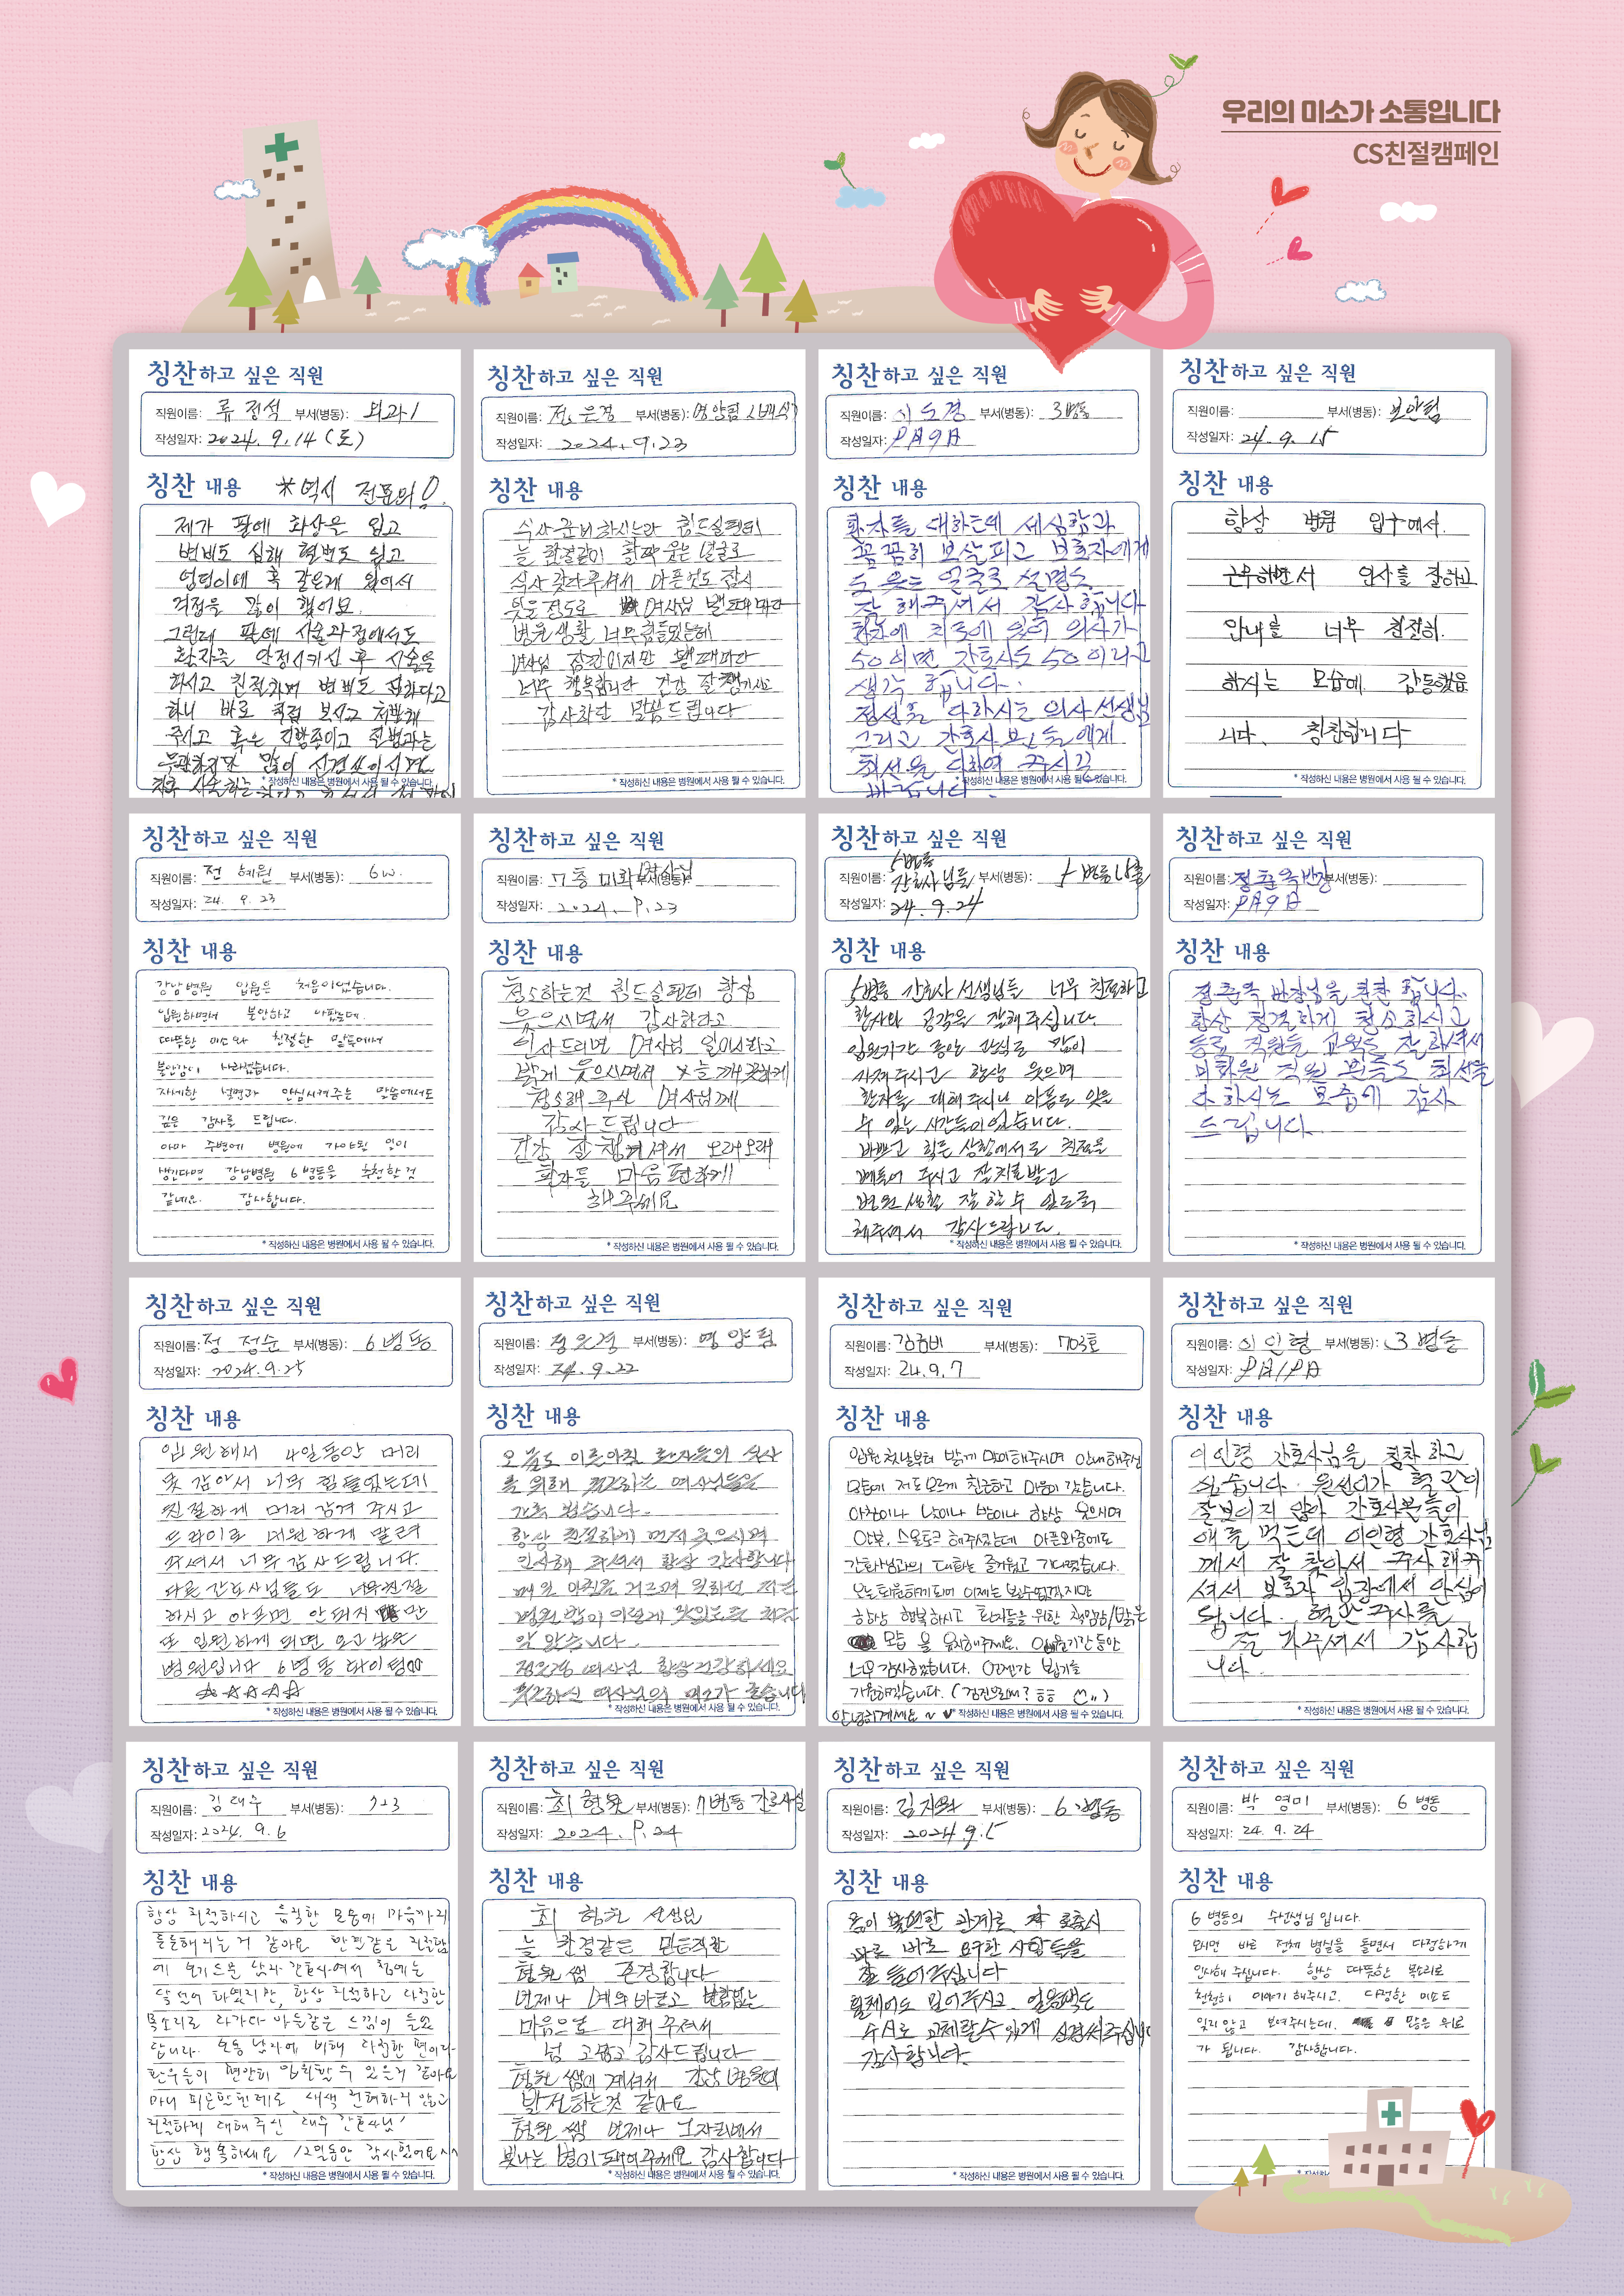 우리의 미소가 소통입니다
CS친절캠페인
칭찬하고 싶은 직원
직원이름: 류진석 부서(병동): 외과1
작성일자: 2024. 9. 14 (토)
칭찬 내용
*역시 전문의!
제가 팔에 화상은 입고
변비도 심해 혈변도 있고
엉덩이에 혹 같은게 있어서
걱정을 많이 했어요.
그런데 팔에 시술과정에서도
환자를 안정시키신 후 시술을
하시고 친절하며 변비도 심하다고
하니 바로 직접 보시고 처방해
주시고 혹은 지방종이고 혈변과는
무관하지만 많이 신경쓰이시면
* 작성하신 내용은 병원에서 사용 될 수 있습니다.
칭찬하고 싶은 직원
직원이름: 정은경 부서(병동): 영양팀 (배식)
작성일자: 2024. 9. 23
칭찬 내용
식사준비 하시는라 힘드실텐데
늘 한결같이 활짝 웃는 얼굴로
식사 갖다주셔서 아픈것도 잠시
잊을 정도로 여사님 뵐때마다
병원생활 너무 힘들었는데
여사님 잠깐이지만 뵐때마다
너무 행복합니다 건강 잘 챙기시고
감사하단 말씀드립니다
* 작성하신 내용은 병원에서 사용 될 수 있습니다.
칭찬하고 싶은 직원
직원이름: 이도경 부서(병동): 3병동
작성일자: 9月9日
칭찬 내용
환자를 대하는데 세심함과
꼼꼼히 보살피고 보호자에게
도 웃는 얼굴로 설명도
잘 해주셔서 감사합니다
환자에 치료에 있어 의사가
50이면 간호사도 50이라고
생각 합니다.
정성을 다하시는 의사선생님
그리고 간호사분들에게
최선을 다하여 주시길
바랍니다.
* 작성하신 내용은 병원에서 사용 될 수 있습니다.
칭찬하고 싶은 직원
직원이름: 부서(병동): 보안팀
작성일자: 24. 9. 15
칭찬 내용
항상 병원 입구에서.
근무하면서 인사를 잘하고
안내를 너무 친절히.
하시는 모습에 감동했읍
니다. 칭찬합니다
* 작성하신 내용은 병원에서 사용 될 수 있습니다.
칭찬하고 싶은 직원
직원이름: 전혜원 부서(병동): 6w.
작성일자: 24. 9. 23
칭찬 내용
강남병원 입원은 처음이었습니다.
입원하면서 불안하고 아팠는데.
따뜻한 미소와 친절한 말투에서
불안감이 사라졌습니다.
자세한 설명과 안심시켜주는 말씀에서도
깊은 감사를 드립니다.
아마 주변에 병원에 가야될 일이
생긴다면 강남병원 6병동을 추천할 것
같네요. 감사합니다.
* 작성하신 내용은 병원에서 사용 될 수 있습니다.
칭찬하고 싶은 직원
직원이름: 7층 미화 여사님 부서(병동):
작성일자: 2024. 9. 23
칭찬 내용
청소하는것 힘드실텐데 항상
웃으시면서 감사하다고
인사드리면 여사님 일이시라고
밝게 웃으시면서 늘 깨끗하게
청소해 주신 여사님께
감사드립니다
건강 잘 챙겨셔서 오래오래
환자들 마음 편하게!!
해주세요
* 작성하신 내용은 병원에서 사용 될 수 있습니다.
칭찬하고 싶은 직원
직원이름: 5병동 간호사님들 부서(병동):
작성일자: 24. 9. 24
칭찬 내용
5병동 간호사 선생님들 너무 친절하고
환자와 공감을 잘해주십니다.
입원기간 동안 관심도 많이
가져주시고 항상 웃으며
환자를 대해주시니 아픔도 잊을
수 있는 시간들이었습니다.
바쁘고 힘든 상황에서도 친절을
베풀어 주시고 잘 치료받고
병원 생활 잘 할 수 있도록
해주셔서 감사드립니다.
* 작성하신 내용은 병원에서 사용 될 수 있습니다.
칭찬하고 싶은 직원
직원이름: 정춘옥반장 부서(병동):
작성일자: 9月9日
칭찬 내용
정춘옥 반장님을 칭찬 합니다.
항상 청결하게 청소하시고
동료 직원들 교육도 잘하셔서
미화원 직원 분들도 최선을
다 하시는 모습에 감사
드립니다.
* 작성하신 내용은 병원에서 사용 될 수 있습니다.
칭찬하고 싶은 직원
직원이름: 정 정순 부서(병동): 6병동
작성일자: 2024. 9. 25
칭찬 내용
입원해서 4일동안 머리
못 감아서 너무 힘들었는데
친절하게 머리 감겨 주시고
드라이로 시원하게 말려
주셔서 너무 감사드립니다.
다른 간호사님들도 너무 친절
하시고 아프면 안돼지만
또 입원하게 되면 오고싶은
병원입니다 6병동 화이팅
☆☆☆☆☆
* 작성하신 내용은 병원에서 사용 될 수 있습니다.
칭찬하고 싶은 직원
직원이름: 정은경 부서(병동): 영양팀
작성일자: 24. 9. 22
칭찬 내용
오늘도 이른아침 환자들의 식사
를 위해 수고하는 여사님들을
가족 같습니다.
항상 친절하게 먼저 웃으시며
인사해 주셔서 항상 감사합니다
매일 아침을 거르며 일하던 저는
병원 밥이 이렇게 맛있는줄 처음
알았습니다.
정은경 여사님 항상 건강하세요
수고하신 여사님의 미소가 좋습니다
* 작성하신 내용은 병원에서 사용 될 수 있습니다.
칭찬하고 싶은 직원
직원이름: 김금비 부서(병동): 703호
작성일자: 24. 9. 7
칭찬 내용
입원 첫날부터 밝게 맞이해주시며 안내해주신
모습에 저도모르게 친근하고 마음이 갔습니다.
아침이나 낮이나 밤이나 항상 웃으시며
안부, 스몰토크 해주셨는데 아픈와중에도
간호사님과의 대화는 즐거웠고 기다려졌습니다.
오늘 퇴원하게되어 이제는 볼수없겠지만
항상 행복하시고 환자들을 위한 책임감/밝은
모습을 유지해주세요. 입원기간동안
너무 감사했습니다. 언젠가 보기를
기원하겠습니다. (검진으로써? ㅎㅎ)
안녕히계세요~ ♥
* 작성하신 내용은 병원에서 사용 될 수 있습니다.
칭찬하고 싶은 직원
직원이름: 이인형 부서(병동): 3병동
작성일자:
칭찬 내용
이인형 간호사님을 칭찬하고
싶습니다. 원선이가 혈관이
잘보이지 않아 간호사분들이
애를 먹는데 이인형 간호사님
께서 잘 찾아서 주사 해주
셔서 보호자 입장에서 안심이
됩니다. 혈관주사를
잘 놔주셔서 감사합
니다.
* 작성하신 내용은 병원에서 사용 될 수 있습니다.
칭찬하고 싶은 직원
직원이름: 김대수 부서(병동): 723
작성일자: 2024. 9. 6
칭찬 내용
항상 친절하시고 듬직한 모습에 마음까지
튼튼해지는거 같아요 한결같은 친절함
에 보기드문 남자 간호사여서 첨에는
낯설어 하였지만, 항상 친절하고 다정한
목소리로 다가다 아들같은 느낌이 들었
답니다. 보통 남자에 비해 다정한 편이라
환우들이 편안히 입원할 수 있은거 같아요
마니 피곤할텐데도 내색 전혀하지 않고
친절하게 대해주신 대수 간호사님!
항상 행복하세요 12일동안 감사했어요^^
* 작성하신 내용은 병원에서 사용 될 수 있습니다.
칭찬하고 싶은 직원
직원이름: 최형원 부서(병동): 7병동 간호사실
작성일자: 2024. 9. 24
칭찬 내용
최 형원 선생님
늘 한결같은 믿음직한
형원 쌤 존경합니다
언제나 예의바르고 변함없는
마음으로 대해 주셔서
넘 고맙고 감사드립니다
형원 쌤이 계셔서 강남병원이
발전하는것 같아요
형원 쌤 언제나 그자리에서
빛나는 별이 되어주세요 감사합니다
* 작성하신 내용은 병원에서 사용 될 수 있습니다.
칭찬하고 싶은 직원
직원이름: 김지와 부서(병동): 6병동
작성일자: 2024. 9. 5
칭찬 내용
몸이 불편한 관계로 호출시
바로 바로 요구한 사항들을
잘 들어주십니다
휠체어도 밀어주시고, 얼음팩도
수시로 교체할수 있게 신경써주십니다
감사합니다.
* 작성하신 내용은 병원에서 사용 될 수 있습니다.
칭찬하고 싶은 직원
직원이름: 박영미 부서(병동): 6병동
작성일자: 24. 9. 24
칭찬 내용
6병동의 수선생님 입니다.
오시면 바로 전체 병실을 돌면서 다정하게
인사해 주십니다. 항상 따뜻한 목소리로
천천히 이야기 해주시고. 다정한 미소도
잊지 않고 보여주시는데. 많은 위로
가 됩니다. 감사합니다.